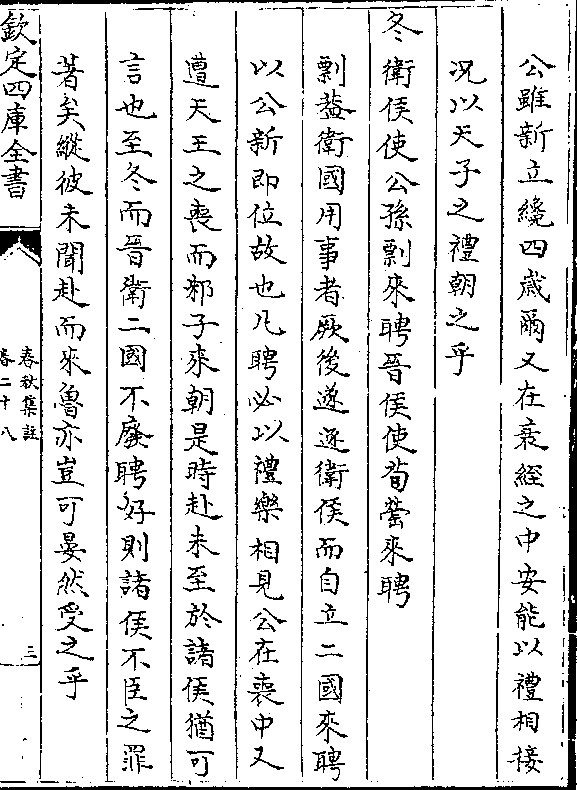 公雖新立纔四歳爾又在衰絰之中安能以禮相接
况以天子之禮朝之乎
冬衛侯使公孫剽來聘晉侯使荀罃來聘
剽葢衛國用事者厥後遂逐衛侯而自立二國來聘
以公新即位故也凡聘必以禮樂相見公在喪中又
遭天王之喪而邾子來朝是時赴未至於諸侯猶可
言也至冬而晉衛二國不廢聘好則諸侯不臣之罪
著矣縱彼未聞赴而來魯亦豈可晏然受之乎
欽定四庫全書
春秋集註
卷二十八
三